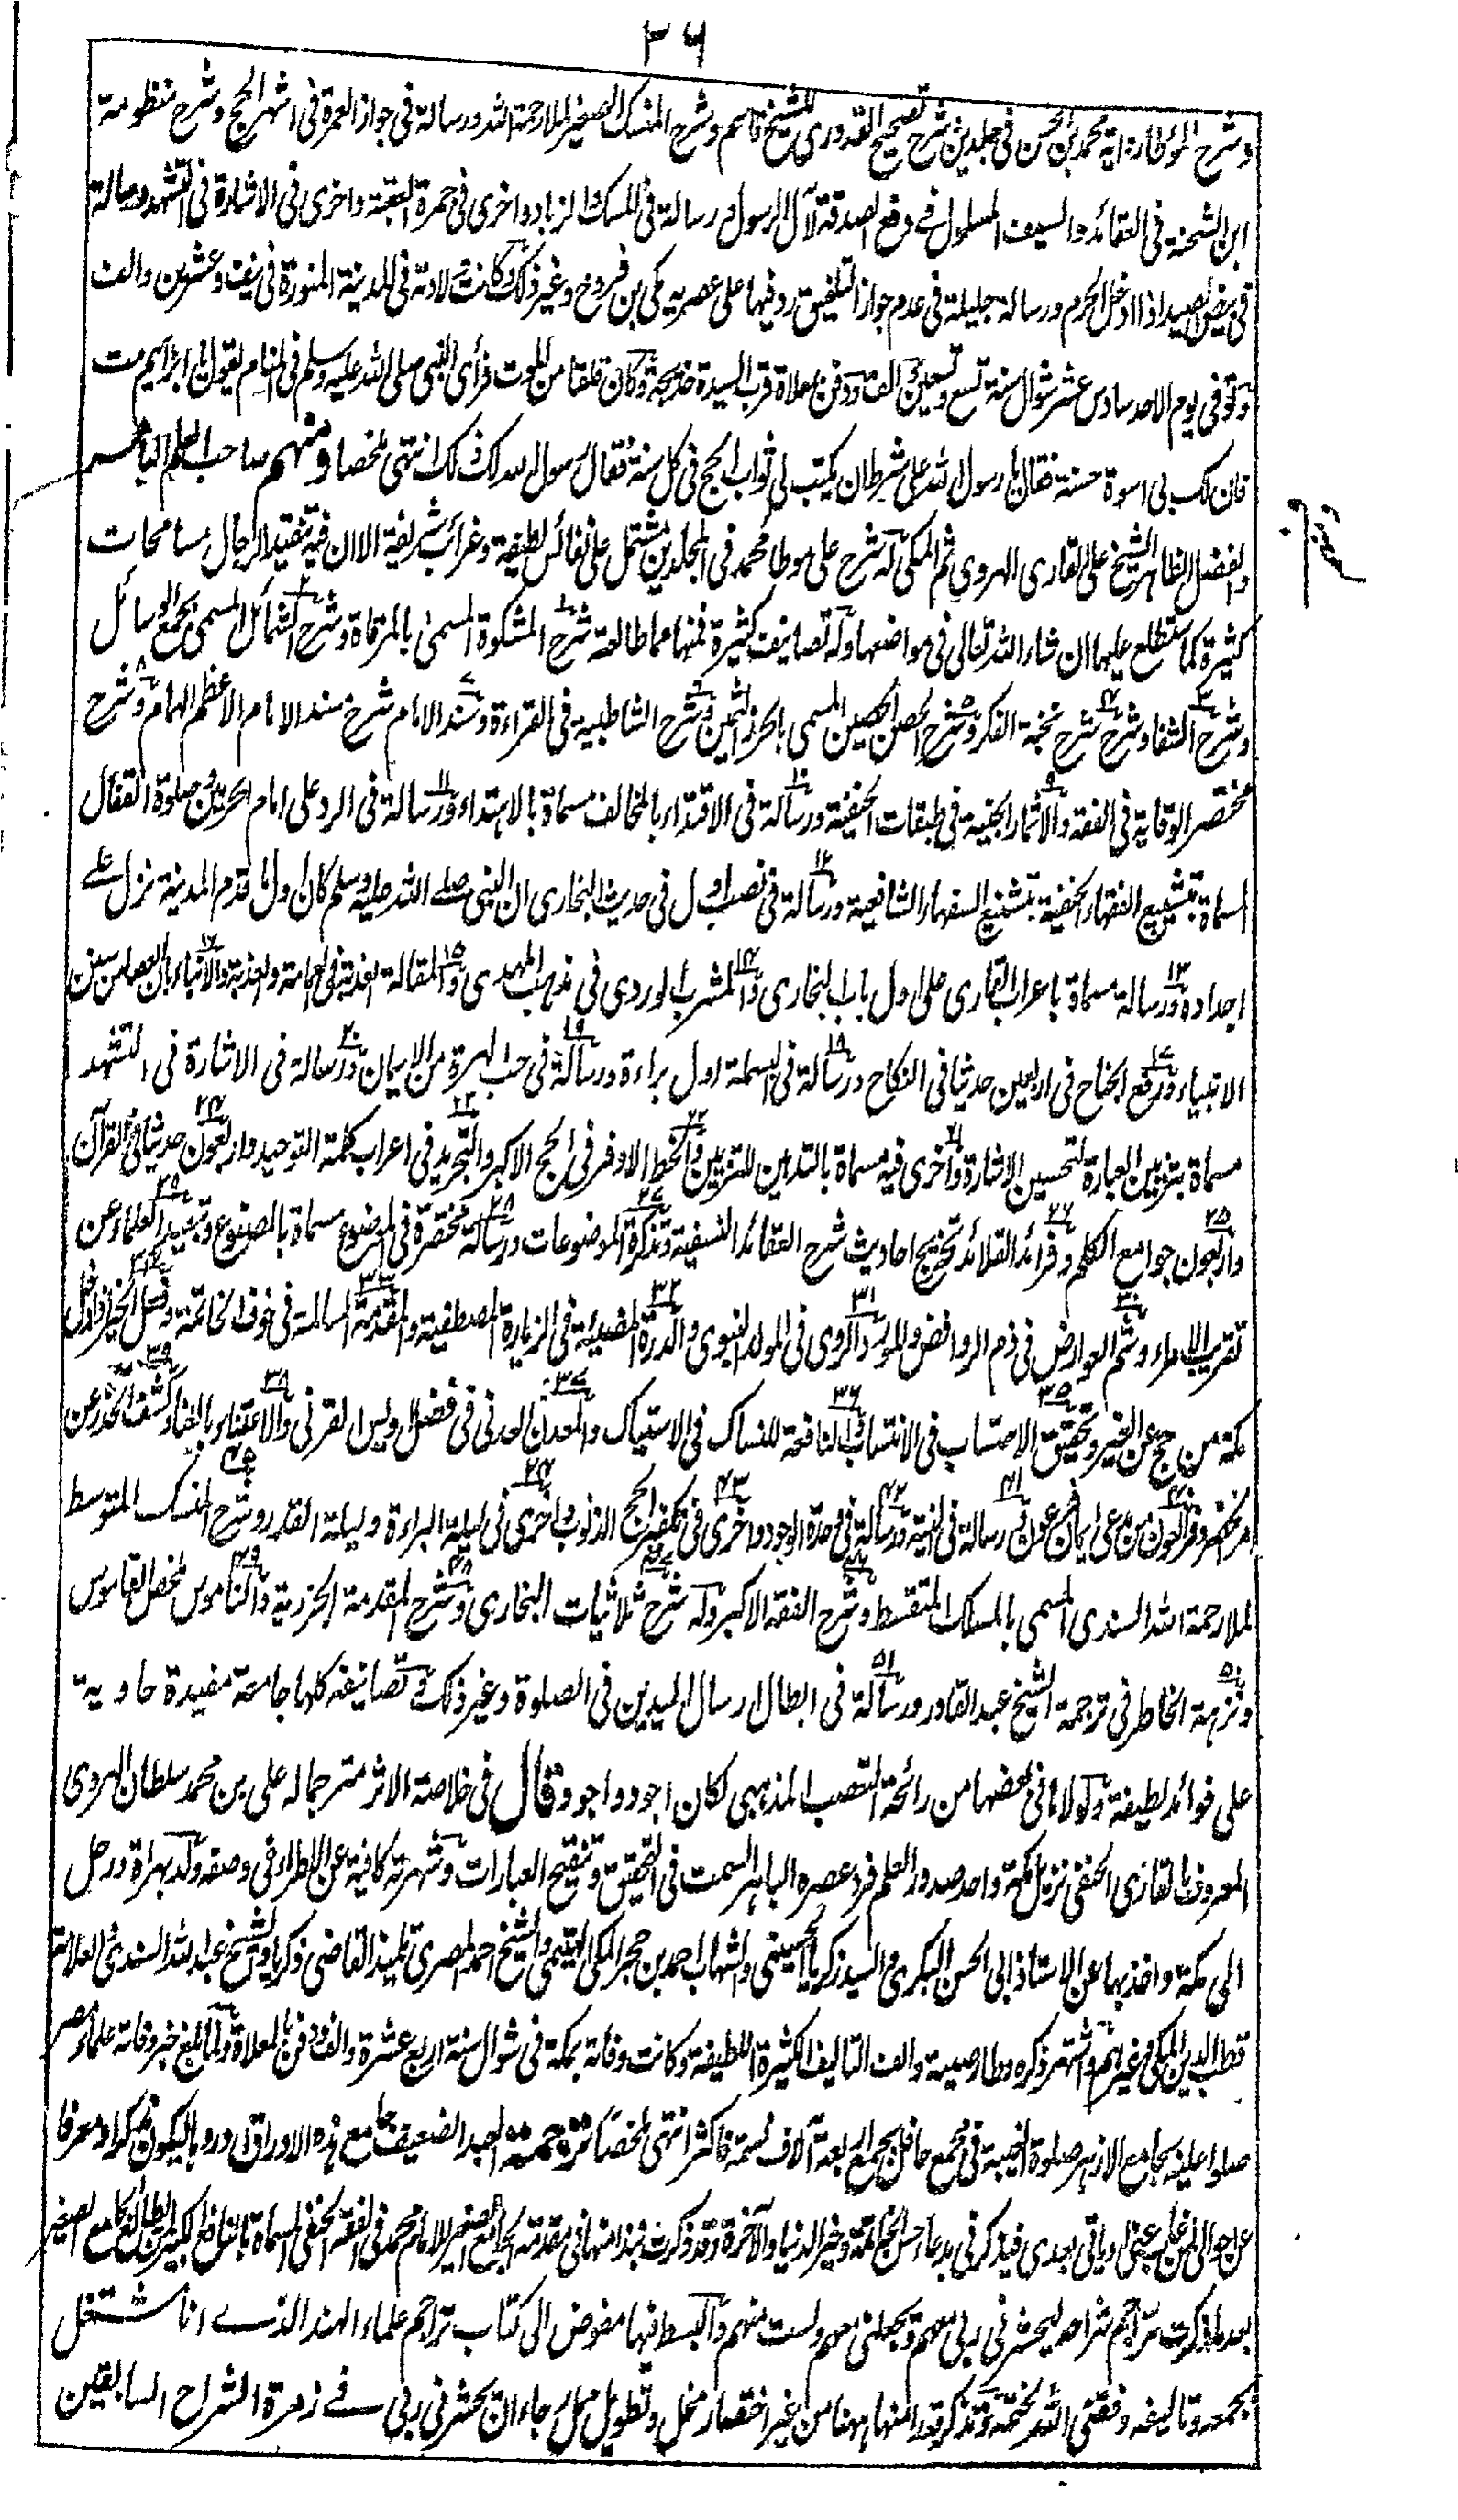 ٣٦
وشرح الموطا رواية محمد بن الحسن في جلدين شرح تصحيح القدوري للشيخ قاسم وشرح المنسك الصغير لملا رحمة الله ورسالة في جواز العمرة في اشهر الحج وشرح منظومة
ابن الشحنة في العقائد والسيف المسلول في دفع الصدقة لآل الرسول ورسالة في المسك والزباد واخرى في جمرة العقبة واخرى في الاشارة في التشهد ورسالة
في بيض الصيد اذا ادخل الحرم ورسالة جليلة في عدم جواز التلفيق رد فيها على عصريه مكي بن فروخ وغير ذلك وكانت ولادته في المدينة المنورة في نيف وعشرين والف
وتوفي يوم الاحد سادس عشر شوال سنة تسع وتسعين والف ودفن بالمعلاة قرب السيدة خديجة وكان قلقا من الموت فرأى النبي صلى الله عليه وسلم في المنام يقول لي ابراهيم مت
فان لك بي اسوة حسنة فقال يا رسول الله على شرط ان يكتب لي ثواب الحج في كل سنة فقال رسول الله لك ذلك انتهى ملخصا ومنهم صاحب العلم الباهر
والفضل الظاهر الشيخ على القارى الهروي ثم المكي له شرح على موطا محمد في المجلدين مشتمل على نفائس لطيفة وغرائب شريفة الا ان فيه في تنقيد الرجال مسامحات
كثيرة كما ستطلع عليها ان شاء الله تعالى في مواضعها وله تصانيف كثيرة فمنها مما طالعته شرح المشكوة المسمى بالمرقاة وشرح الشمائل المسمى بجمع الوسائل
وشرح الشفا وشرح شرح نخبة الفكر وشرح الحصن الحصين المسمى بالحرز الثمين وشرح الشاطبية في القراءة وسند الامام شرح مسند الامام الاعظم الهمام وشرح
مختصر الوقاية في الفقه والاثمار الجنية في طبقات الحنفية ورسالة في الاقتداء بالمخالف مسماة بالاهتداء ورسالة في الرد على امام الحرمين صلوة القفال
اسماة بتشييع الفقهاء الحنفية بتشنيع السفهاء الشافعية ورسالة في نصب اول في حديث البخارى ان النبي صلے الله عليه وسلم كان اول ما قدم المدينة نزل علے
اجداده ورسالة مسماة باعراب القارى على اول باب البخارى والمشرب الوردي في مذهب المهدى والمقالة العذبة في العمامة والعذبة والانباء بان العصا من سنن
الانبياء ورفع الجناح في اربعين حديثا في النكاح ورسالة في البسملة اول براءة ورسالة في حب الهرة من الايمان ورسالة في الاشارة في التشهد
مسماة بتزيين العبارة لتحسين الاشارة واخرى فيه مسماة بالتدهين للتزيين والحظ الاوفر في الحج الاكبر والتجريد في اعراب كلمة التوحيد واربعون حديثا في القرآن
واربعون جوامع الكلم وفرائد القلائد تخريج احاديث شرح العقائد النسفية وتذكرة الموضوعات ورسالة مختصرة في الموضوع مسماة بالمصنوع وتبعيد العلماء عن
تقريب الامراء وشم العوارض في ذم الروافض والمورد الروى في المولد النبوى والدرة المضيئة في الزيارة المصطفية والمقدمة السالمة في خوف الخاتمة وفعل الخير اذا دخل
مكة من حج عن الغير وتحقيق الاحتساب في الانتساب والنافعة للنساك في الاستياك والمعدن العدني في فضل اويس القرني والاعتناء بالغناء وكشف الخدر عن
امر الخضر وفر العون من مدعى ايمان فرعون ورسالة في النية ورسالة في وحدة الوجود واخرى في تكفير الحج الذنوب واخرى في ليلة البراءة وليلة القدر وشرح المنسك المتوسط
لملا رحمة الله السندى المسمى بالمسلك المتقسط وشرح الفقه الاكبر وله شرح ثلاثيات البخارى وشرح المقدمة الجزرية والناموس ملخص القاموس
ونزهة الخاطر في ترجمة الشيخ عبد القادر ورسالة في ابطال ارسال اليدين في الصلوة وغير ذلك وتصانيفه كلها جامعة مفيدة حاوية
على فوائد لطيفة ولولا ما في بعضها من رائحة التعصب المذهبى لكان اجود واجود وقال في خلاصة الاثر مترجما له على بن محمد سلطان الهروى
المعروف بالقارى الحنفى نزيل مكة واحد صدور العلم فرد عصره الباهر السمت في التحقيق وتنقيح العبارات وشهرته كافية عن الاطراء في وصفه ولد بهراة ورحل
الى مكة واخذ بها عن الاستاذ ابي الحسن البكرى والسيد زكريا الحسينى والشهاب احمد بن حجر المكى الهيتمى والشيخ احمد المصرى تلميذ القاضى زكريا والشيخ عبد الله السندى والعلامة
قطب الدين المكى وغيرهم واشتهر ذكره وطار صيته والف التآليف الكثيرة اللطيفة وكانت وفاته بمكة في شوال سنة اربع عشرة والف ودفن بالمعلاة ولما بلغ خبر وفاته علماء مصر
صلوا عليه بجامع الازهر صلوة الغيبة في مجمع حافل يجمع اربعة آلاف نسمة فاكثر انتهى ملخصا ترجمة العبد الضعيف جامع هذه الاوراق اوردها ليكون مذكرا ومعرفا
عن حوالى لمن غاب عنى او ياتى بعدى فيذكرنى بدعاء حسن الخاتمة وخير الدنيا والآخرة وقد ذكرت نبذا منها في مقدمة الجامع الصغير للامام محمد في الفقه الحنفى المسماة بالنافع الكبير لمن يطالع الجامع الصغير
بعد ما ذكرت تراجم شراحه ليحشرنى ربى معهم ويجعلنى معهم ولست منهم والبسط فيها مفوض الى كتاب تراجم علماء الهند الذے انا مشتغل
بجمعه وتاليفه وفقنى الله لختمه ونذكر قدرا منها ههنا من غير اختصار مخل وتطويل ممل رجاء ان يحشرنى ربى فے زمرة الشراح السابقين